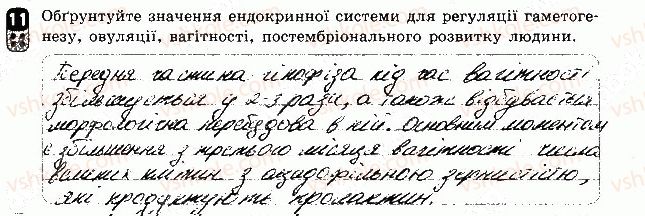 11 Обґрунтуйте значення ендокринної системи для регуляції гаметоге-
незу, овуляції, вагітності, постембріонального розвитку людини.
Передня частина гіпофіза під час вагітності
збільшується у 2-3 рази, а також відбувається
морфологічна перебудова в ній. Основним моментом
є збільшення з третього місяця вагітності числа
великих клітин з ацидофільною зернистістю,
які продукують пролактин.